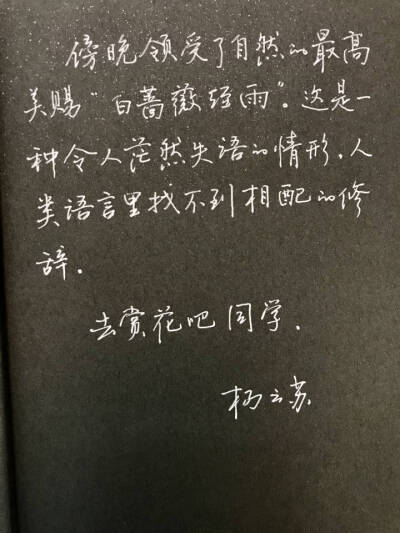 傍晚领受了自然的最高
美赐“白蔷薇经雨”。这是一
种令人茫然失语的情形，人
类语言里找不到相配的修
辞.
去赏花吧同学.
杨云苏